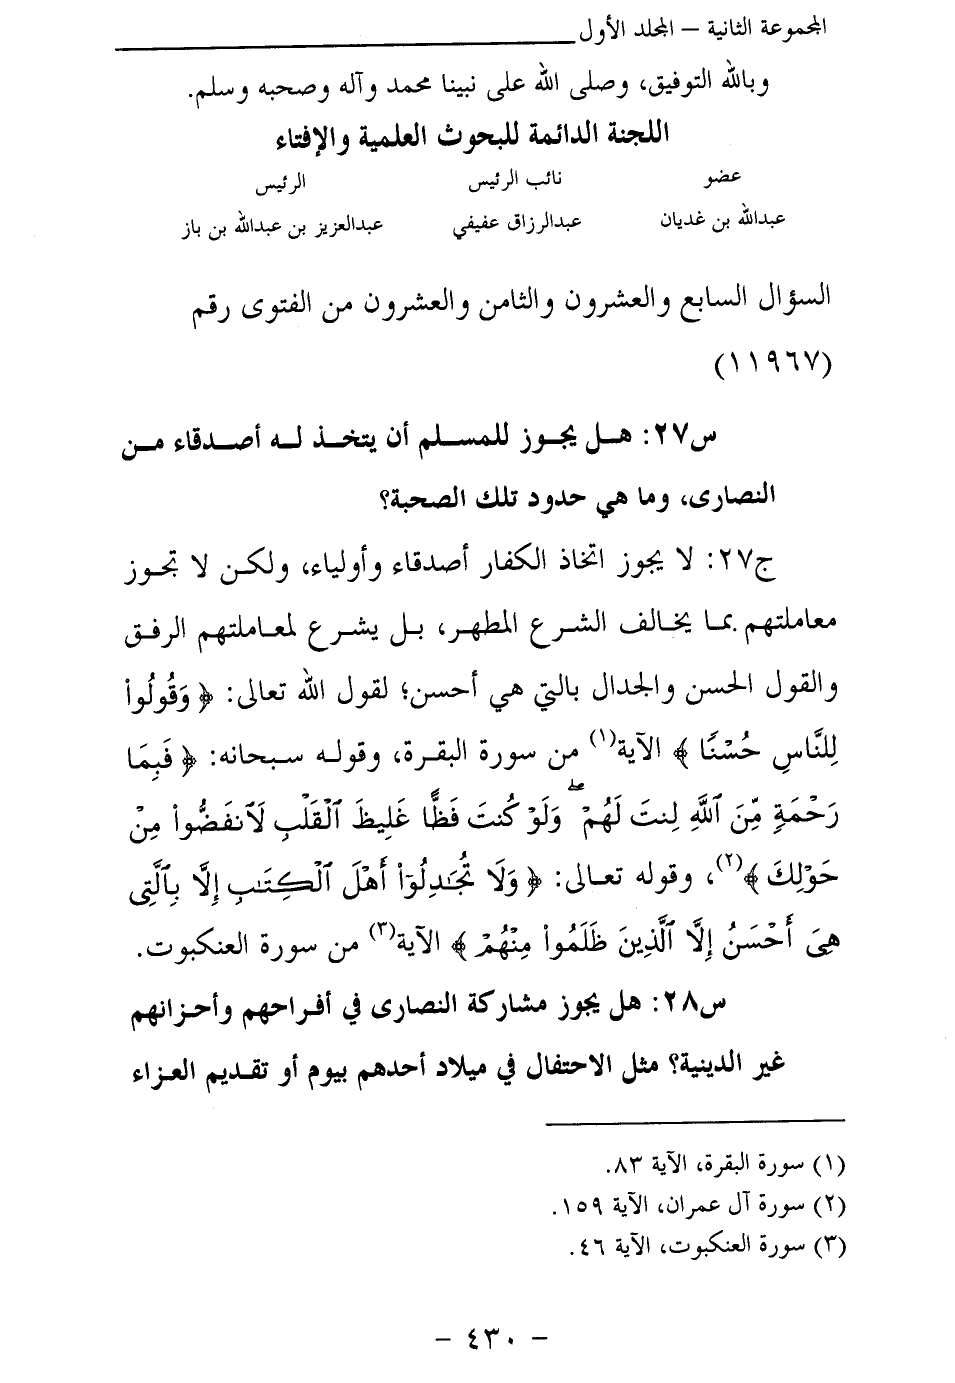 المجموعة الثانية – المجلد الأول
وبالله التوفيق، وصلى الله على نبينا محمد وآله وصحبه وسلم.
اللجنة الدائمة للبحوث العلمية والإفتاء
عضو نائب الرئيس الرئيس
عبدالله بن غديان عبدالرزاق عفيفي عبدالعزيز بن عبدالله بن باز
السؤال السابع والعشرون والثامن والعشرون من الفتوى رقم
(١١٩٦٧)
س٢٧: هـل يجـوز للمسـلم أن يتخـذ لـه أصـدقاء مـن
النصارى، وما هي حدود تلك الصحبة؟
ج٢٧: لا يجوز اتخاذ الكفار أصدقاء وأولياء، ولكـن لا تجـوز
معاملتهم بمـا يخـالف الشـرع المطهـر، بـل يشـرع لمعـاملتهم الرفـق
والقول الحسن والجدال بالتي هي أحسن؛ لقول الله تعالى: ﴿ وَقُولُواْ
لِلنَّاسِ حُسۡنٗا ﴾ الآية(١) من سورة البقرة، وقوله سبحانه: ﴿ فَبِمَا
رَحۡمَةٖ مِّنَ ٱللَّهِ لِنتَ لَهُمۡۖ وَلَوۡ كُنتَ فَظًّا غَلِيظَ ٱلۡقَلۡبِ لَٱنفَضُّواْ مِنۡ
حَوۡلِكَ ﴾(٢)، وقوله تعالى: ﴿ وَلَا تُجَٰدِلُوٓاْ أَهۡلَ ٱلۡكِتَٰبِ إِلَّا بِٱلَّتِي
هِيَ أَحۡسَنُ إِلَّا ٱلَّذِينَ ظَلَمُواْ مِنۡهُمۡ ﴾ الآية(٣) من سورة العنكبوت.
س٢٨: هل يجوز مشاركة النصارى في أفـراحهم وأحـزانهم
غير الدينية؟ مثل الاحتفال في ميلاد أحدهم بيوم أو تقديم العـزاء
(١) سورة البقرة، الآية ٨٣.
(٢) سورة آل عمران، الآية ١٥٩.
(٣) سورة العنكبوت، الآية ٤٦.
– ٤٣٠ –